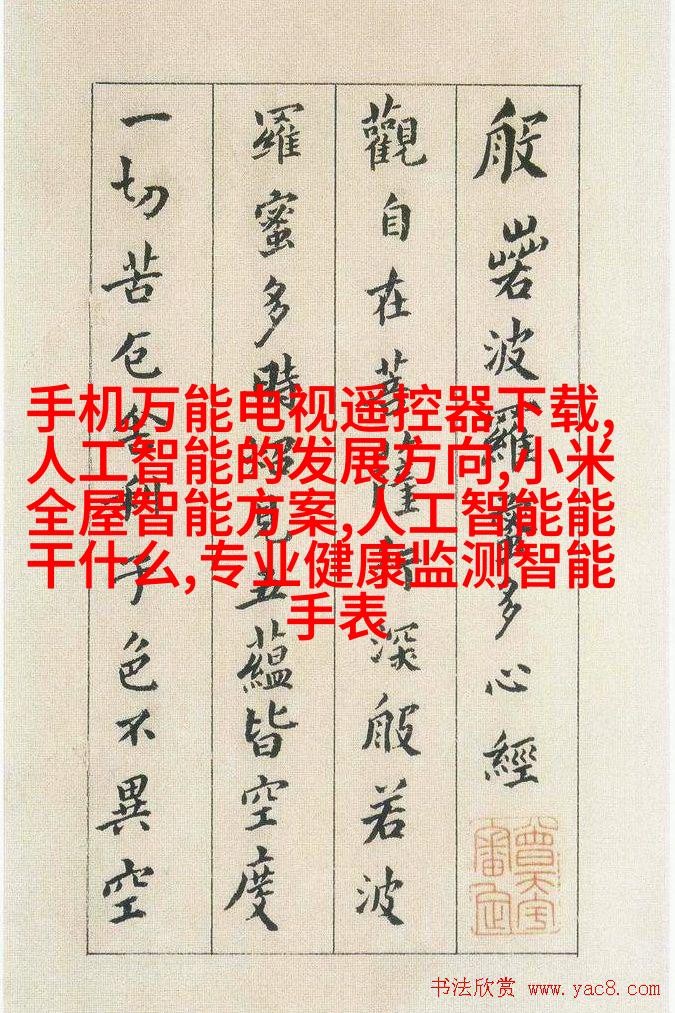 般若波羅蜜多心經
觀自在菩薩行深般若波
羅蜜多時照見五蘊皆空度
一切苦厄舍利子色不異空
手机万能电视遥控器下载,
人工智能的发展方向,小米
全屋智能方案,人工智能能
干什么,专业健康监测智能
手表
书法欣赏 www.yac8.com